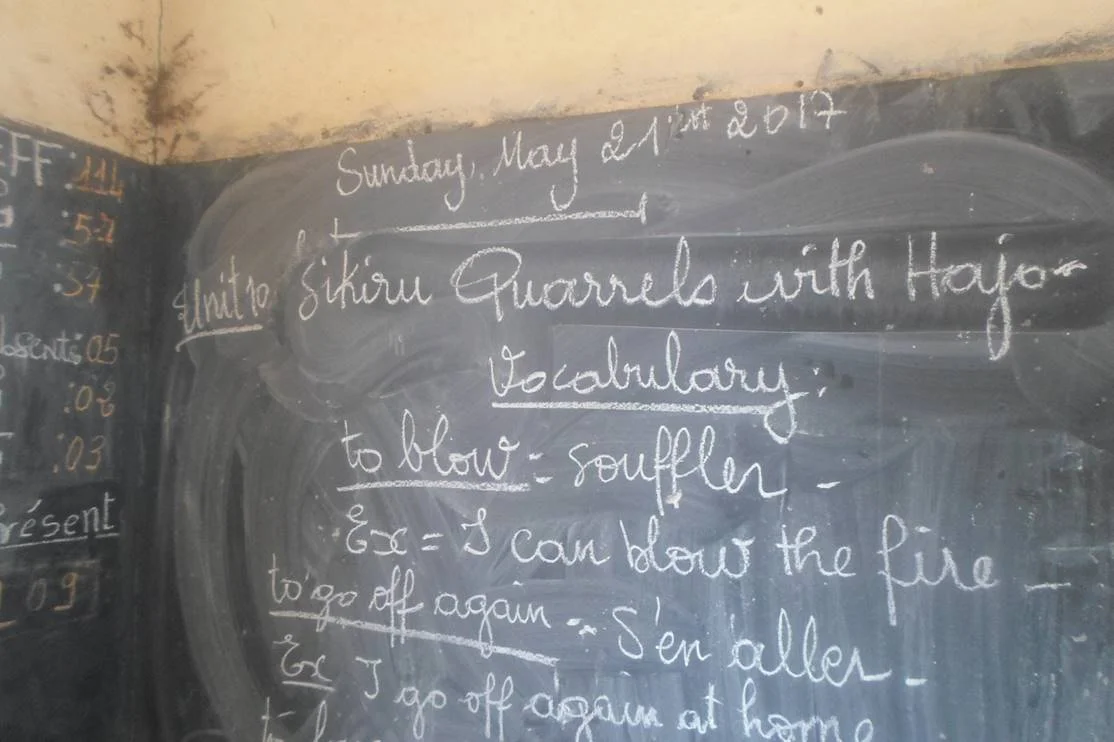 EFF : 114
: 57
: 57
bsents : 05
: 02
: 03
résent
09
Sunday, May 21 st 2017
Unit 10 Sikiru Quarrels with Hajo-
Vocabulary :
to blow = souffler -
Ex = I can blow the fire -
to go off again = S'en aller -
Ex I go off again at home